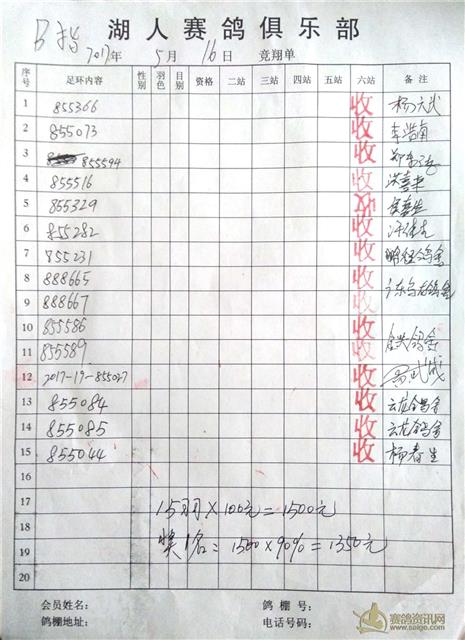 B指
湖人赛鸽俱乐部
2017年 5月 16日 竞翔单
序号 足环内容 性别 羽色 目别 资格 二站 三站 四站 五站 六站 备注
1 855366 收
2 855073 收 李浩南
3 855594 收
4 855516 收
5 855329
6 855282 收
7 855231 收 鸽舍
8 888665 收 广东乌龙鸽舍
9 888667 收
10 855586 收
11 855589 收
12 2017-19-855027 收
13 855084 收 云龙鸽舍
14 855085 收 云龙鸽舍
15 855044 收 柳春生
16
17 15羽×100元=1500元
18
19 奖1名:=1500×90%=1350元
20
会员姓名: 鸽棚号:
鸽棚地址: 电话号码:
赛鸽资讯网
www.saige.com